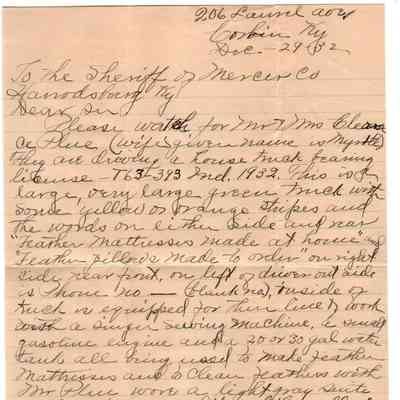 206 Laurel ave
Corbin Ky
Dec - 29/32
To the Sheriff of Mercer Co
Harrodsburg Ky
Dear Sir
Please watch for Mr & Mrs Claren
ce Plue (wife's given name is Myrtle)
they are driving a house truck bearing
license - T63-393 Ind. 1932. This is a
large, very large green truck with
some yellow or orange stripes and
the words on either side and rear
"Feather Mattresses made at home" and
"Feather pillows made to order" on right
side, rear front, on left of driver out side
is Phone no — (blank no), inside of
truck is equipped for their line of work
with a singer sewing machine, a small
gasoline engine and a 20 or 30 gal water
tank all being used to make feather
Mattresses and to clean feathers with
Mr Plue wore a light gray suite